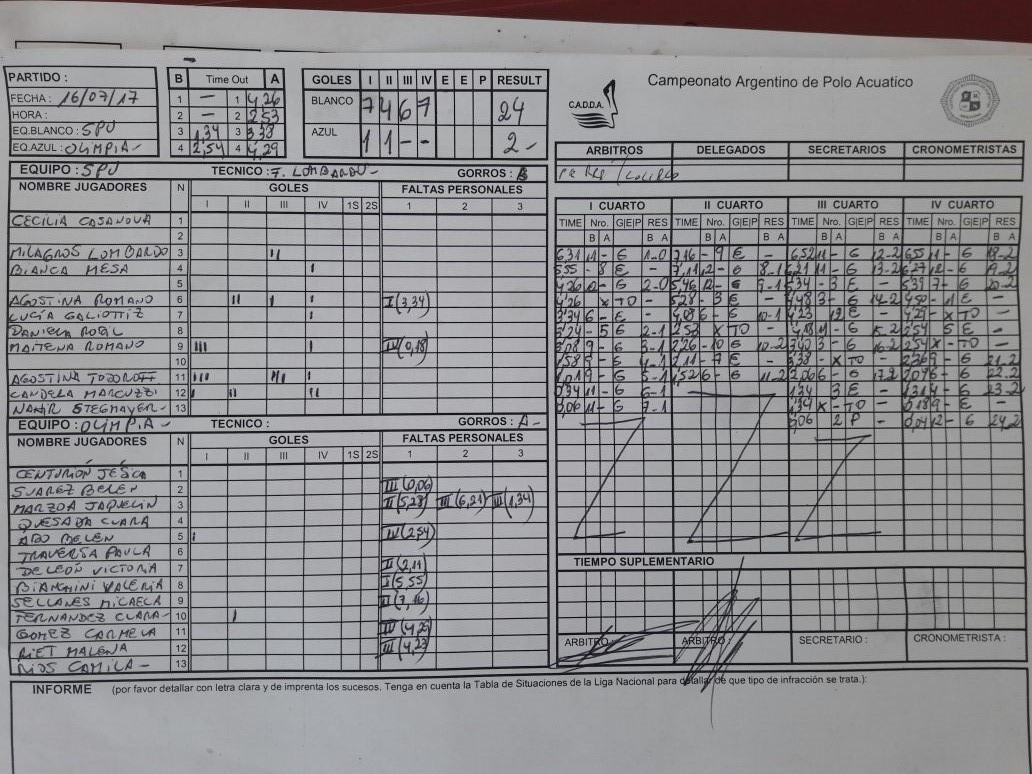 Campeonato Argentino de Polo Acuatico
C.A.D.D.A.
PARTIDO :
FECHA : 16/07/17
HORA :
EQ.BLANCO : SPU
EQ.AZUL : OLIMPIA -
B Time Out A
1 — 1 4,26
2 — 2 2,53
3 1,34 3 3,38
4 2,54 4 4,29
GOLES I II III IV E E P RESULT
BLANCO 7 4 6 7 24
AZUL 1 1 - - 2 -
ARBITROS DELEGADOS SECRETARIOS CRONOMETRISTAS
EQUIPO : SPU TECNICO : F. LOMBARDO - GORROS : B
NOMBRE JUGADORES N GOLES FALTAS PERSONALES
I II III IV 1S 2S 1 2 3
CECILIA CASANOVA 1
2
MILAGROS LOMBARDO 3 II
BIANCA MESA 4 I
5
AGOSTINA ROMANO 6 II I I II (3,34)
LUCÍA GALIOTTIZ 7 I
8
MAITENA ROMANO 9 III I IV (0,18)
10
AGOSTINA TODOROFF 11 III III I
CANDELA MARCUZZI 12 I II I
NAHIR STEGMAYER - 13
EQUIPO : OLIMPIA - TECNICO : GORROS : A -
NOMBRE JUGADORES N GOLES FALTAS PERSONALES
I II III IV 1S 2S 1 2 3
CENTURIÓN JÉSICA 1
SUAREZ BELEN 2 III (0,06)
MARZOA JAQUELIN 3 II (5,28) III (6,21) III (1,34)
QUESADA CLARA 4
ABO BELEN 5 I IV (2,54)
TRAVERSA PAULA 6
DE LEÓN VICTORIA 7 II (2,11)
BIANCHINI VALERIA 8 I (5,55)
SELLANES MICAELA 9 II (7,16)
FERNANDEZ CLARA - 10 I
GOMEZ CARMELA 11
RIET MALENA 12 III (4,23)
RIOS CAMILA - 13
I CUARTO II CUARTO III CUARTO IV CUARTO
TIME Nro. G|E|P RES TIME Nro. G|E|P RES TIME Nro. G|E|P RES TIME Nro. G|E|P RES
B A B A B A B A B A B A B A B A
6,31 11 - G 1-0 7,16 - 9 E - 6,52 11 - G 12-2 6,55 11 - G 18-2
5,55 - 8 E - 7,11 12 - G 8-1 6,21 11 - G 13-2 6,27 12 - G 19-2
4,26 12 - G 2-0 5,46 12 - G 9-1 5,34 - 3 E - 5,39 7 - G 20-2
4,26 X TO - 5,28 - 3 E - 4,48 3 - G 14-2 4,50 - 11 E -
3,34 6 - E - 4,08 6 - G 10-1 4,23 12 E - 4,29 - X TO -
3,24 - 5 G 2-1 2,53 X TO - 4,18 11 - G 15-2 2,54 5 E -
3,08 9 - G 3-1 2,26 - 10 G 10-2 3,40 3 - G 16-2 2,54 X - TO -
1,58 9 - G 4-1 2,11 - 7 E - 3,38 - X TO - 2,36 9 - G 21-2
1,01 9 - G 5-1 1,52 6 - G 11-2 2,06 6 - G 17-2 2,04 6 - G 22-2
0,34 11 - G 6-1 1,34 3 E - 1,21 4 - G 23-2
0,06 11 - G 7-1 1,34 X - TO - 0,18 9 - E -
0,06 2 P - 0,04 12 - G 24-2
TIEMPO SUPLEMENTARIO
ARBITRO : ARBITRO : SECRETARIO : CRONOMETRISTA :
INFORME (por favor detallar con letra clara y de imprenta los sucesos. Tenga en cuenta la Tabla de Situaciones de la Liga Nacional para detallar de que tipo de infracción se trata.):